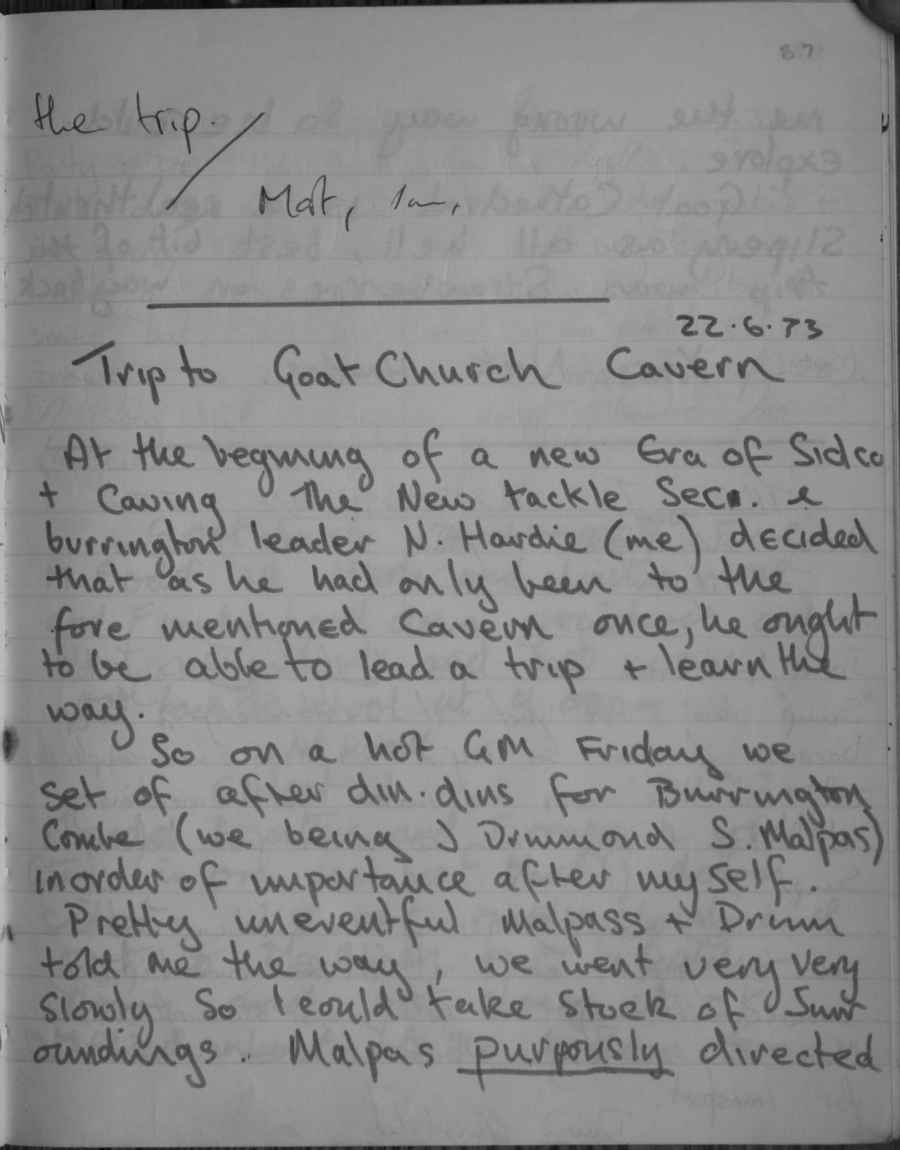 87
the trip.
Mat, Ian.
22.6.73
Trip to Goat Church Cavern
At the begining of a new Era of Sidco
+ Caving The New tackle Sec. &
burrington leader N. Hardie (me) decided
that as he had only been to the
fore mentioned Cavern once, he ought
to be able to lead a trip + learn the
way.
So on a hot GM Friday we
set of after din.dins for Burrington
Combe (we being J Drummond S. Malpas)
in order of importance after myself.
Pretty uneventful Malpass + Drum
told me the way, we went very very
slowly so I could take stock of Surr
oundings. Malpas purposly directed